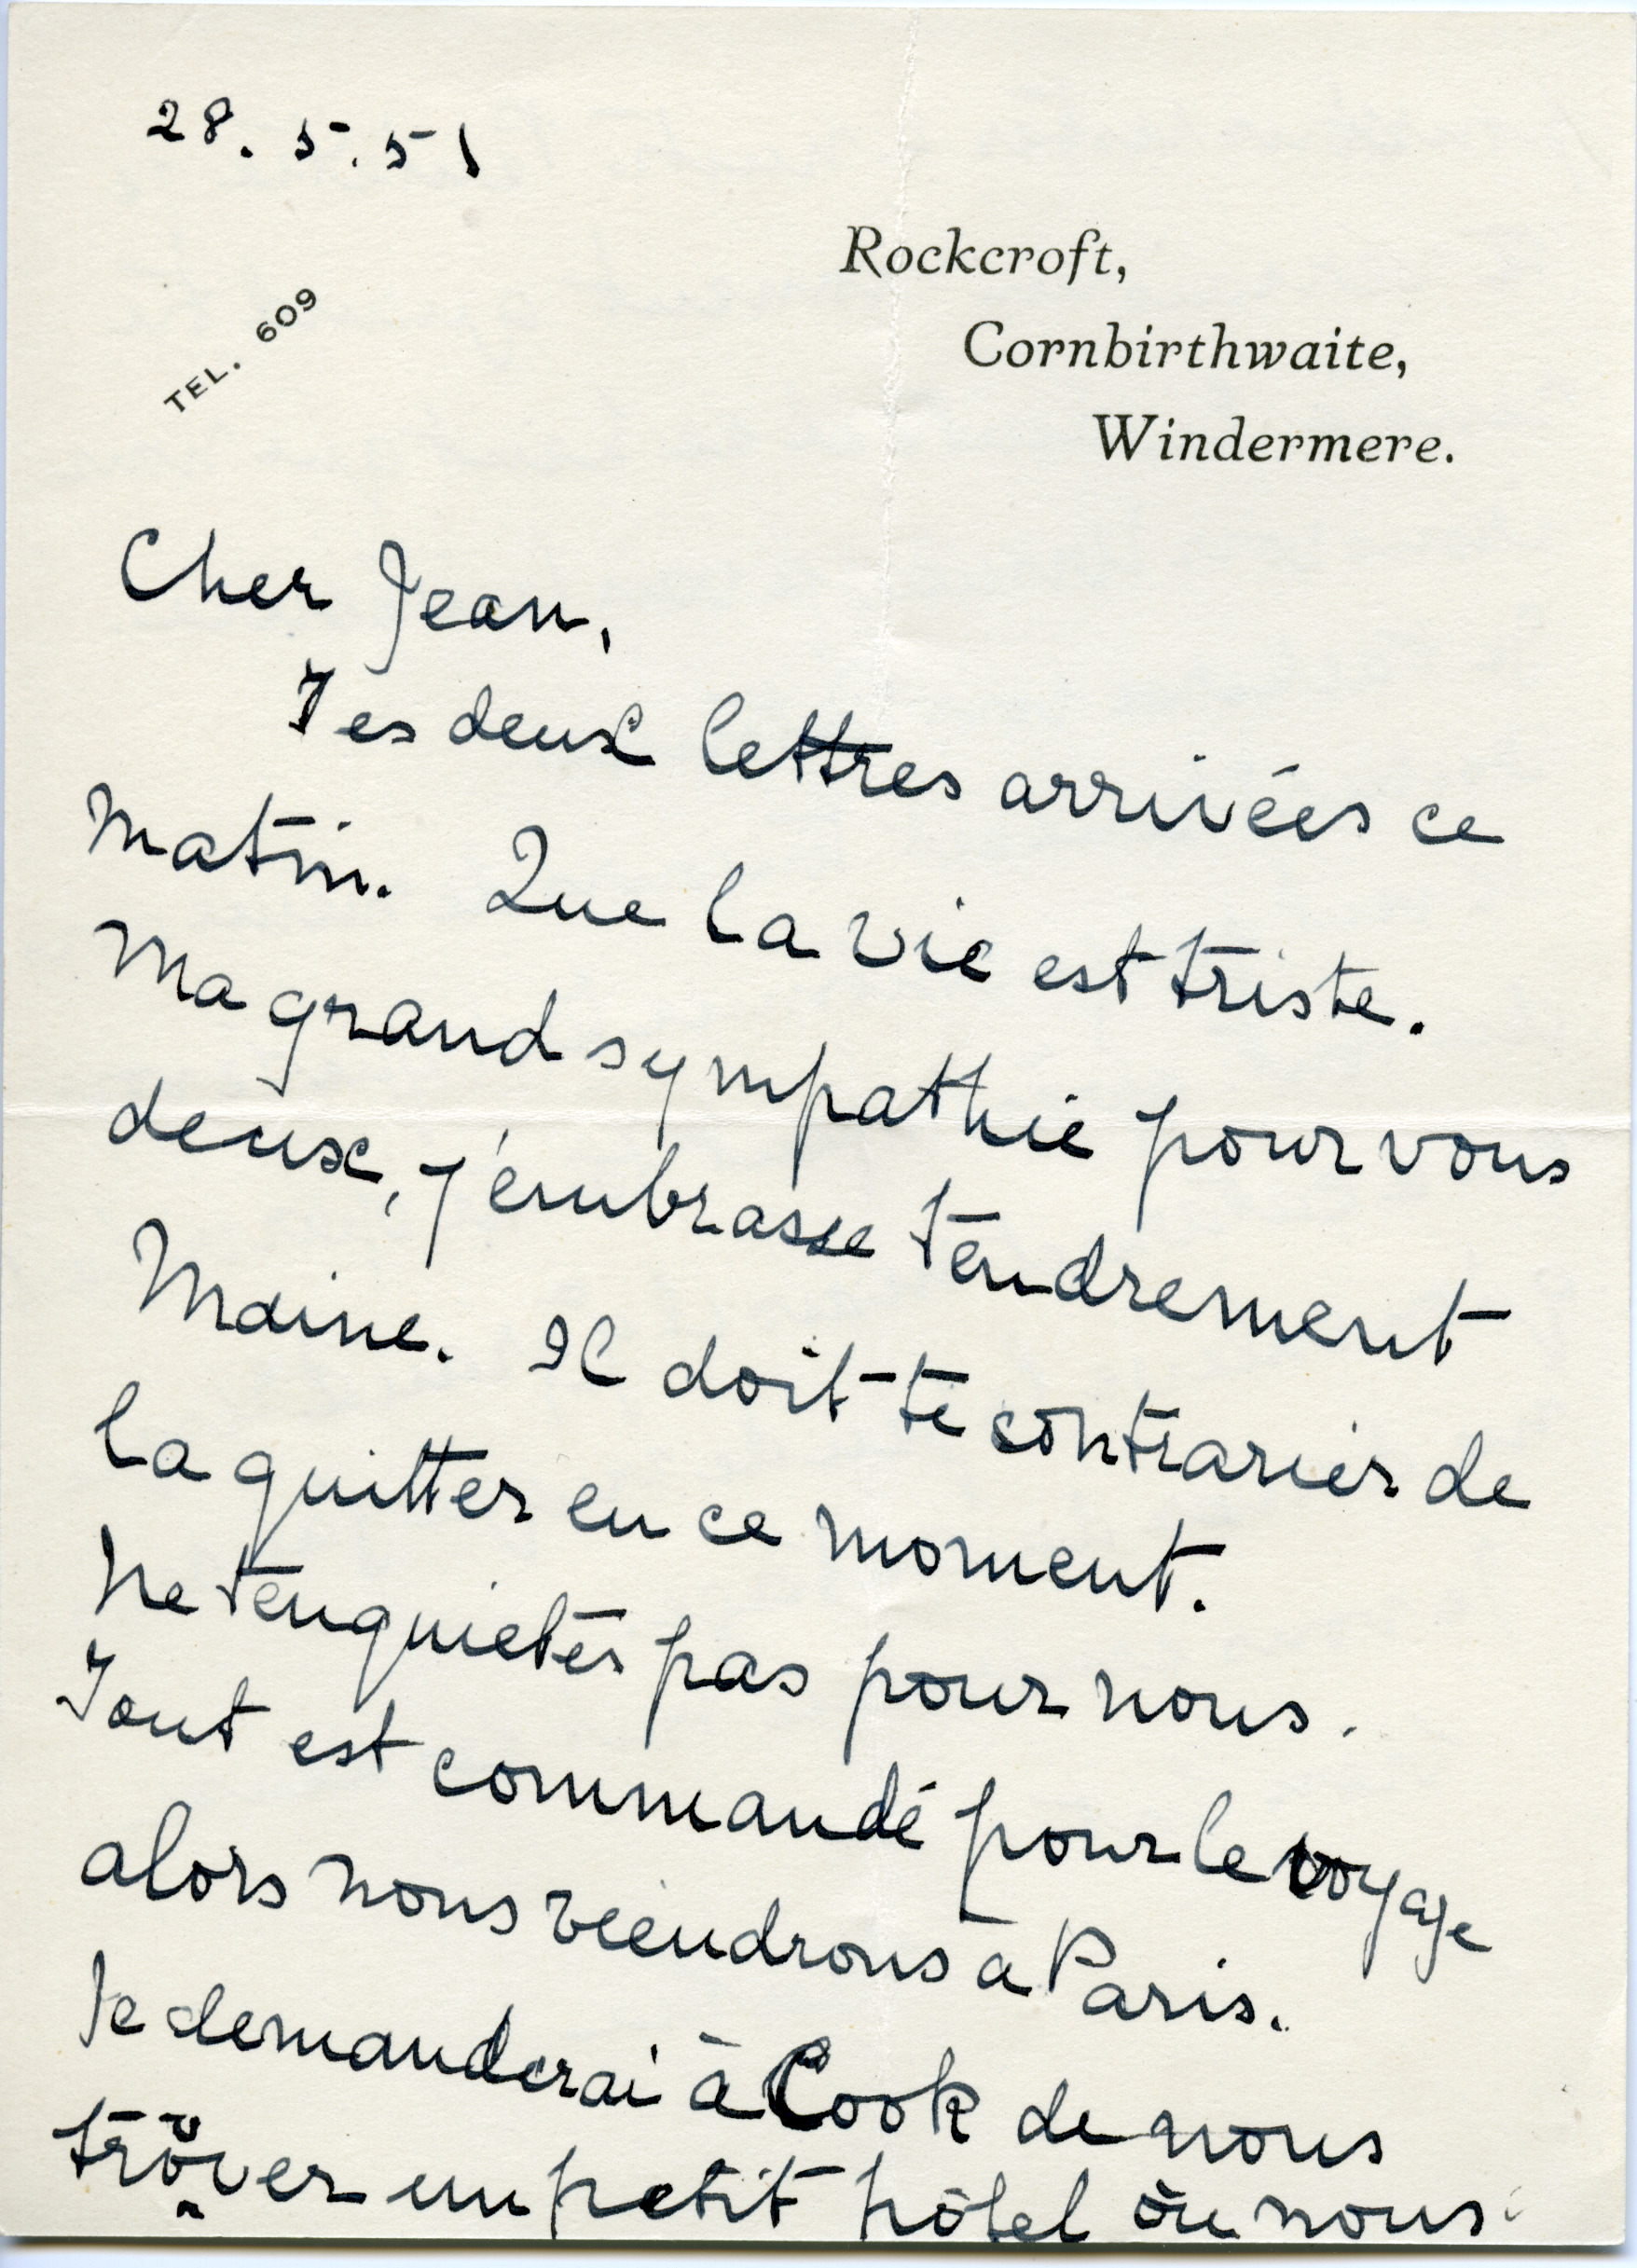 28.5.51
TEL. 609
Rockcroft,
Cornbirthwaite,
Windermere.
Cher Jean,
Tes deux lettres arrivées ce
matin. Que la vie est triste.
Ma grand sympathie pour vous
deux, j'embrasse tendrement
Maine. Il doit te contrarier de
la quitter en ce moment.
Ne t'enquietes pas pour nous.
Tout est commandé pour le voyage
alors nous viendrons à Paris.
Je demanderai à Cook de nous
trouver un petit hôtel où nous